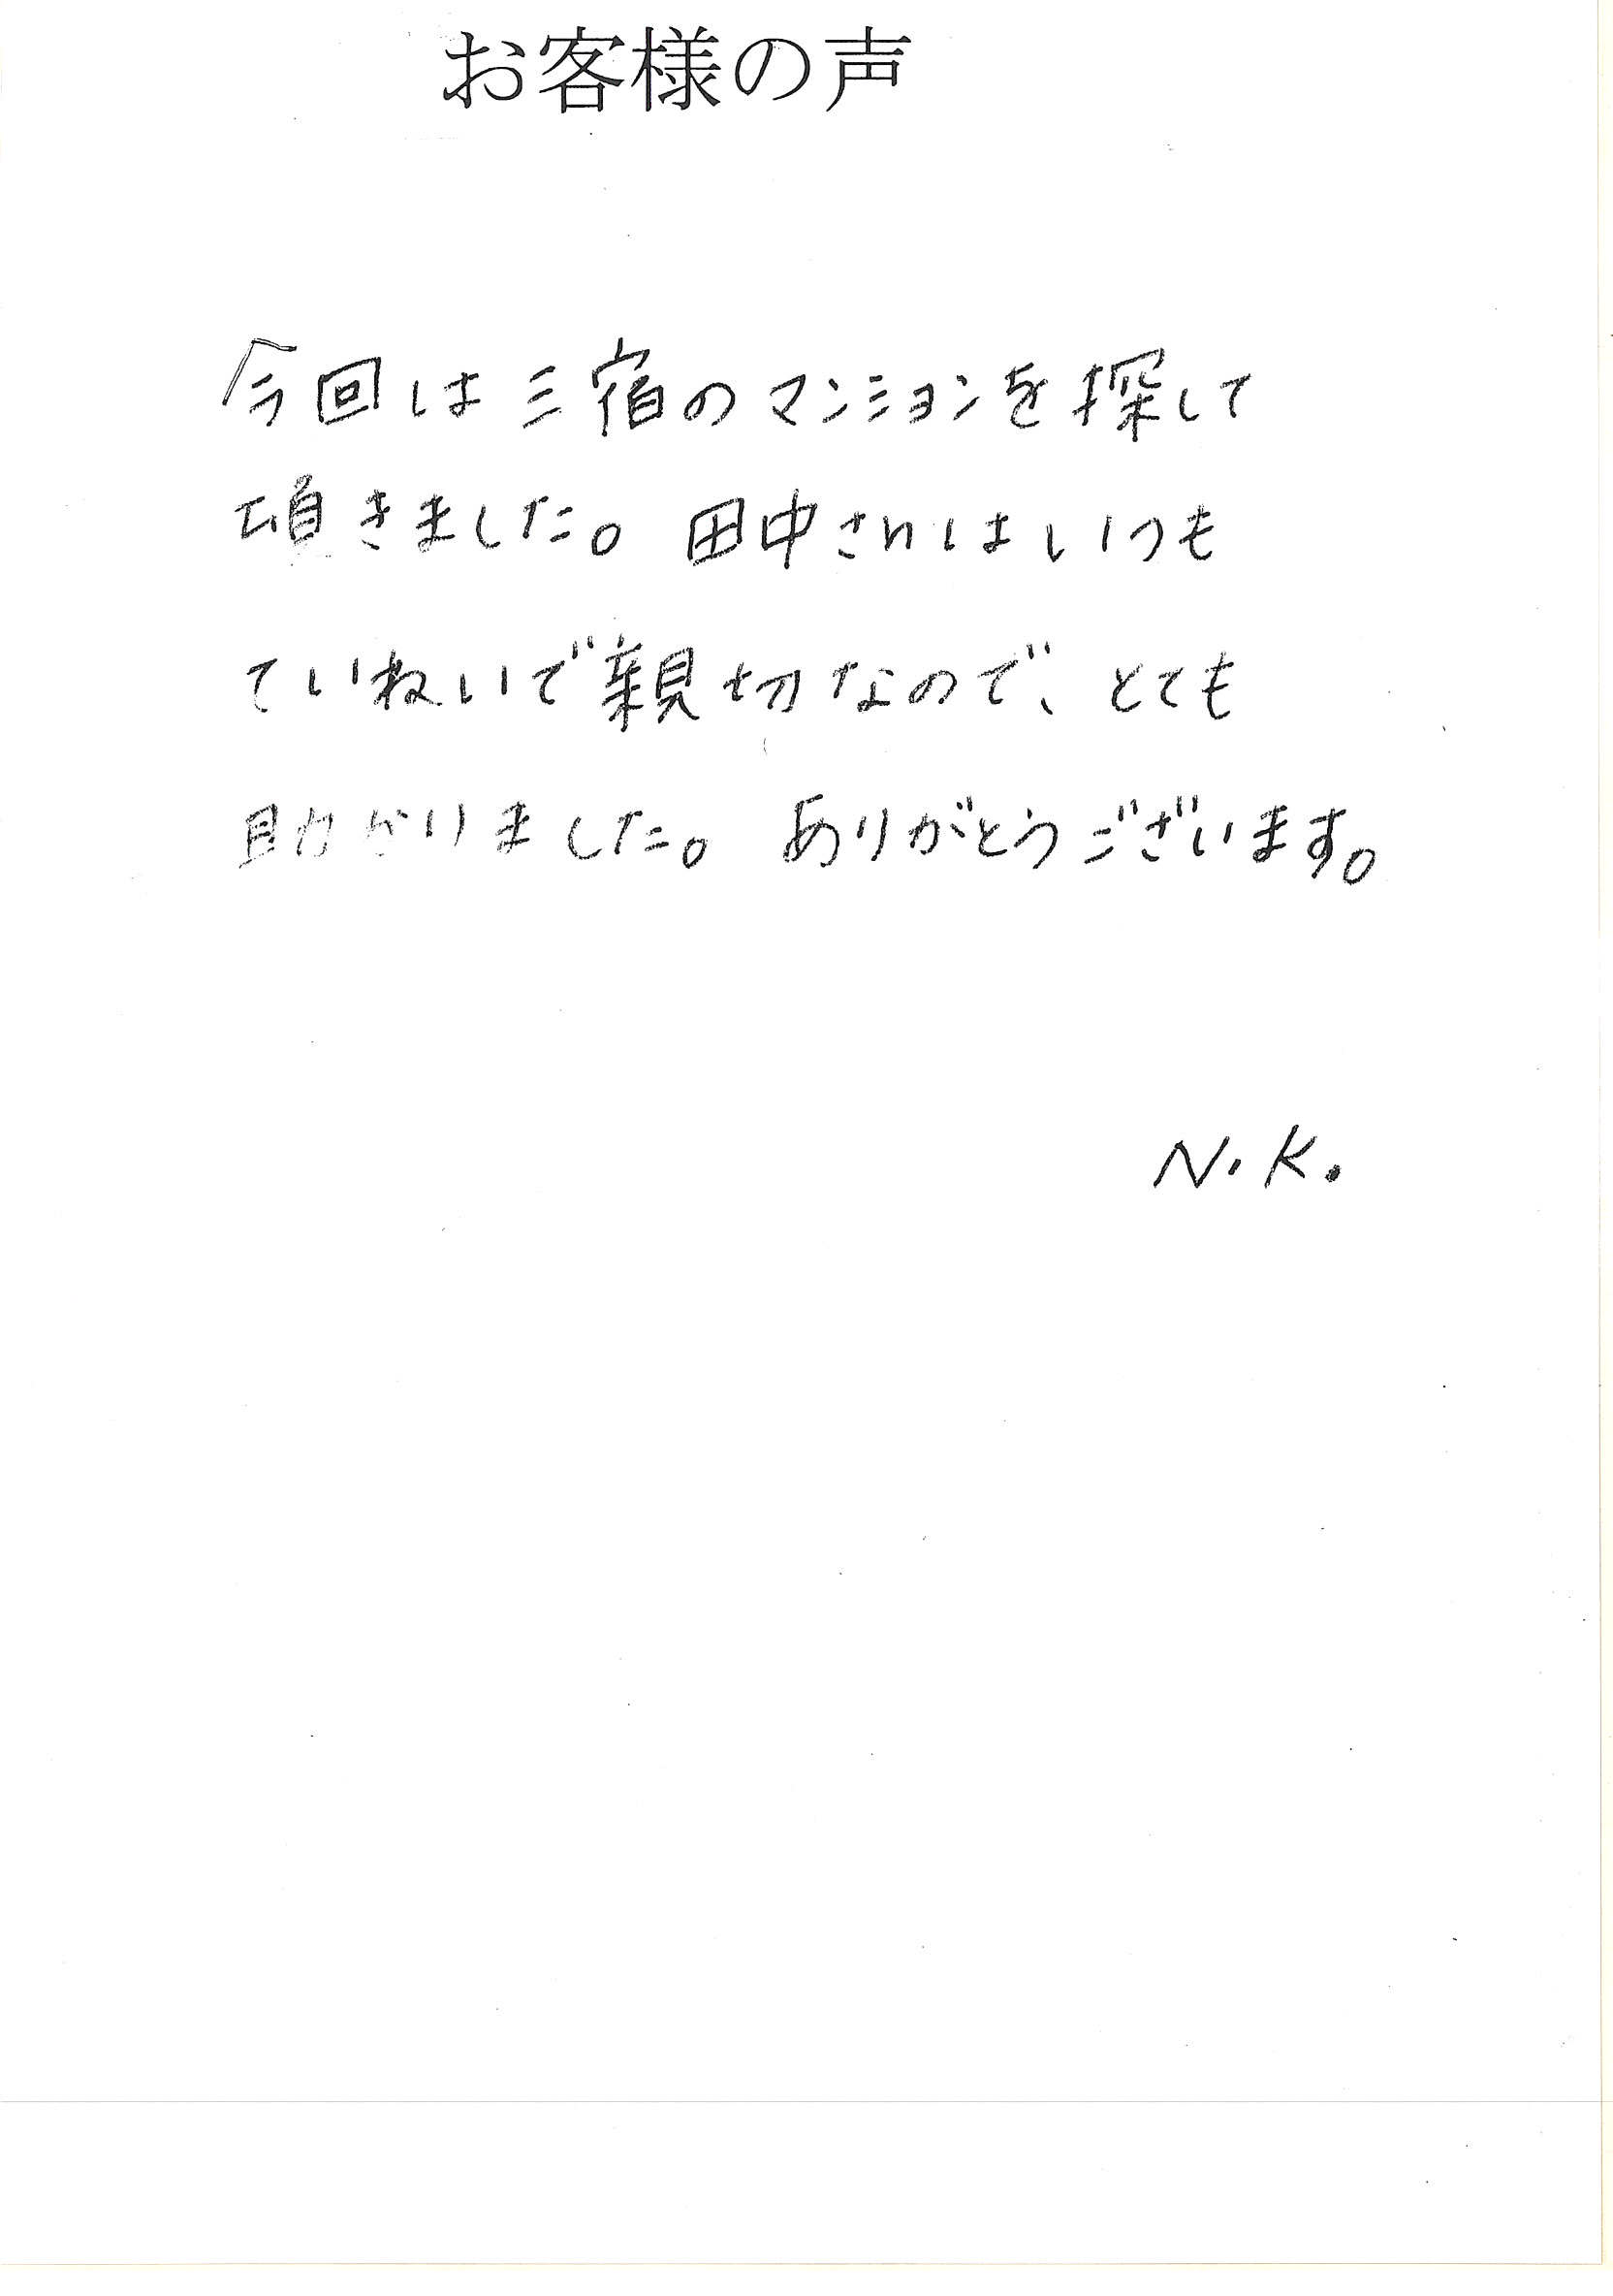 お客様の声
今回は三宿のマンションを探して
頂きました。田中さんはいつも
ていねいで親切なので、とても
助かりました。ありがとうございます。
N.K.